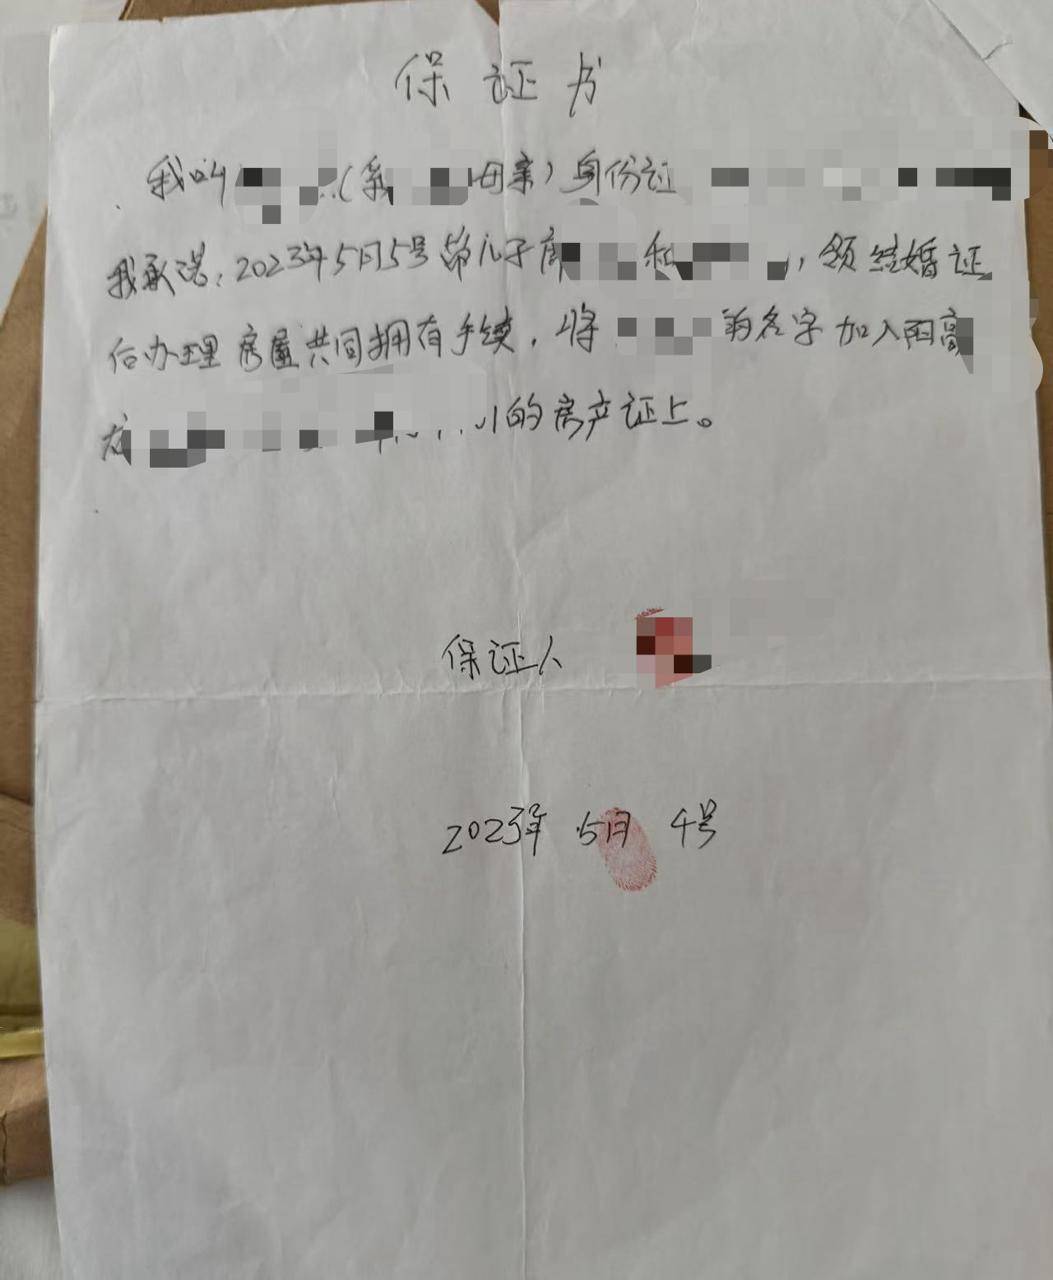 保证书
我叫(系母亲)身份证
我承诺:2023年5月5号给儿子 和 ,领结婚证
后办理房屋共同拥有手续,将 的名字加入阳高
的房产证上。
保证人
2023年 5月 4号